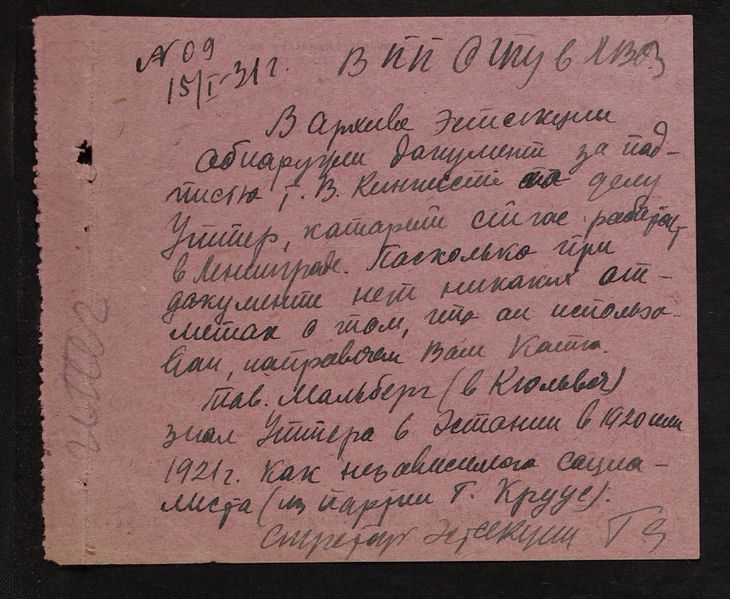 № 09
15/I-31г.
В ПП ОГПУ в ЛВО
В Архиве Эстсекции
обнаружен документ за под-
писью т. В. Кингисепп по делу
Уттер, который сейчас работает
в Ленинграде. Поскольку при
документе нет никаких от-
меток о том, что он использо-
ван, направляем Вам
тов. Мальберг (в
знал Уттера в Эстонии в 1920 или
1921 г. как независимого социа-
листа (из партии Г. Круус).
Секретарь Эстсекции